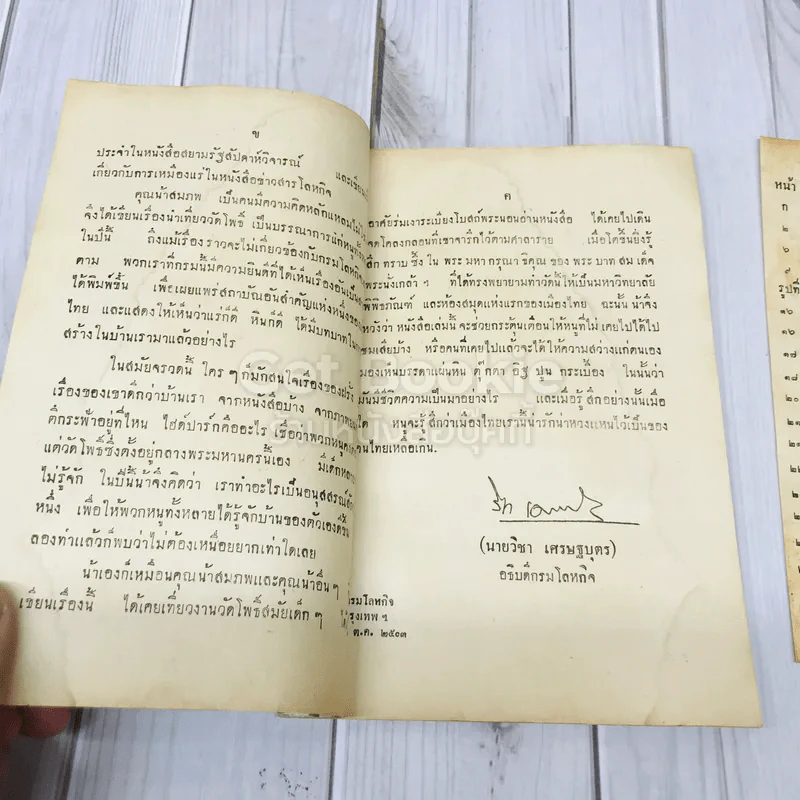 ข
ประจำในหนังสือสยามรัฐสัปดาห์วิจารณ์ และเขียน
เกี่ยวกับการเหมืองแร่ในหนังสือข่าวสารโลหกิจ
คุณน้าสมภพ เป็นคนมีความคิดหลักแหลมไม่
จึงได้เขียนเรื่องนำเที่ยววัดโพธิ์ เป็นบรรณาการแก่หนูทั้ง
ในปีนี้ ถึงแม้เรื่องราวจะไม่เกี่ยวข้องกับกรมโลหกิจ
ตาม พวกเราที่กรมนี้มีความยินดีที่ได้เห็นเรื่องอันเป็น
ได้พิมพ์ขึ้น เพื่อเผยแพร่สถาบันอันสำคัญแห่งหนึ่งของ
ไทย และแสดงให้เห็นว่าแร่ก็ดี หินก็ดี ได้มีบทบาทใน
สร้างในบ้านเรามาแล้วอย่างไร
ในสมัยจรวดนี้ ใคร ๆ ก็มักสนใจเรื่องของฝรั่ง
เรื่องของเขาดีกว่าบ้านเรา จากหนังสือบ้าง จากภาพ
ตึกระฟ้าอยู่ที่ไหน ไฮด์ปาร์คคืออะไร เชื่อว่าพวกหนู
แต่วัดโพธิ์ซึ่งตั้งอยู่กลางพระมหานครนี้เอง มีเด็กหลาย
ไม่รู้จัก ในปีนี้น้าจึงคิดว่า เราทำอะไรเป็นอนุสสรณ์สัก
หนึ่ง เพื่อให้พวกหนูทั้งหลายได้รู้จักบ้านของตัวเองดีขึ้น
ลองทำแล้วก็พบว่าไม่ต้องเหนื่อยยากเท่าใดเลย
น้าเองก็เหมือนคุณน้าสมภพและคุณน้าอื่น ๆ
เขียนเรื่องนี้ ได้เคยเที่ยวงานวัดโพธิ์สมัยเด็ก ๆ ได้
ค
อาศัยร่มเงาระเบียงโบสถ์พระนอนอ่านหนังสือ ได้เคยไปเดิน
จดโคลงกลอนที่เขาจารึกไว้ตามศาลาราย เมื่อโตขึ้นยิ่งรู้
สึก ทราบ ซึ้ง ใน พระ มหา กรุณา ธิคุณ ของ พระ บาท สม เด็จ
พระนั่งเกล้า ฯ ที่ได้ทรงพยายามทำวัดนี้ให้เป็นมหาวิทยาลัย
พิพิธภัณฑ์ และห้องสมุดแห่งแรกของเมืองไทย ฉะนั้น น้าจึง
หวังว่า หนังสือเล่มนี้ จะช่วยกระตุ้นเตือนให้หนูที่ไม่ เคยไปได้ไป
ชมเสียบ้าง หรือคนที่เคยไปแล้วจะได้ให้ความสว่างแก่ตนเอง
มองเห็นบรรดาแผ่นหิน ตุ๊กตา อิฐ ปูน กระเบื้อง ในนั้นว่า
มันมีชีวิตความเป็นมาอย่างไร และเมื่อรู้ สึกอย่างนั้นเมื่อ
ใด หนูจะรู้ สึกว่าเมืองไทยเรานี้น่ารักน่าหวงแหนไว้เป็นของ
คนไทยเหลือเกิน.
(นายวิชา เศรษฐบุตร)
อธิบดีกรมโลหกิจ
กรมโลหกิจ
กรุงเทพ ฯ
ต.ค. ๒๕๐๓
หน้า
ก
๒
๖
๙
รูปที่
๑๖
๑๖
Got BOOKIE
ร้านหนังสือบุ๊คกี้